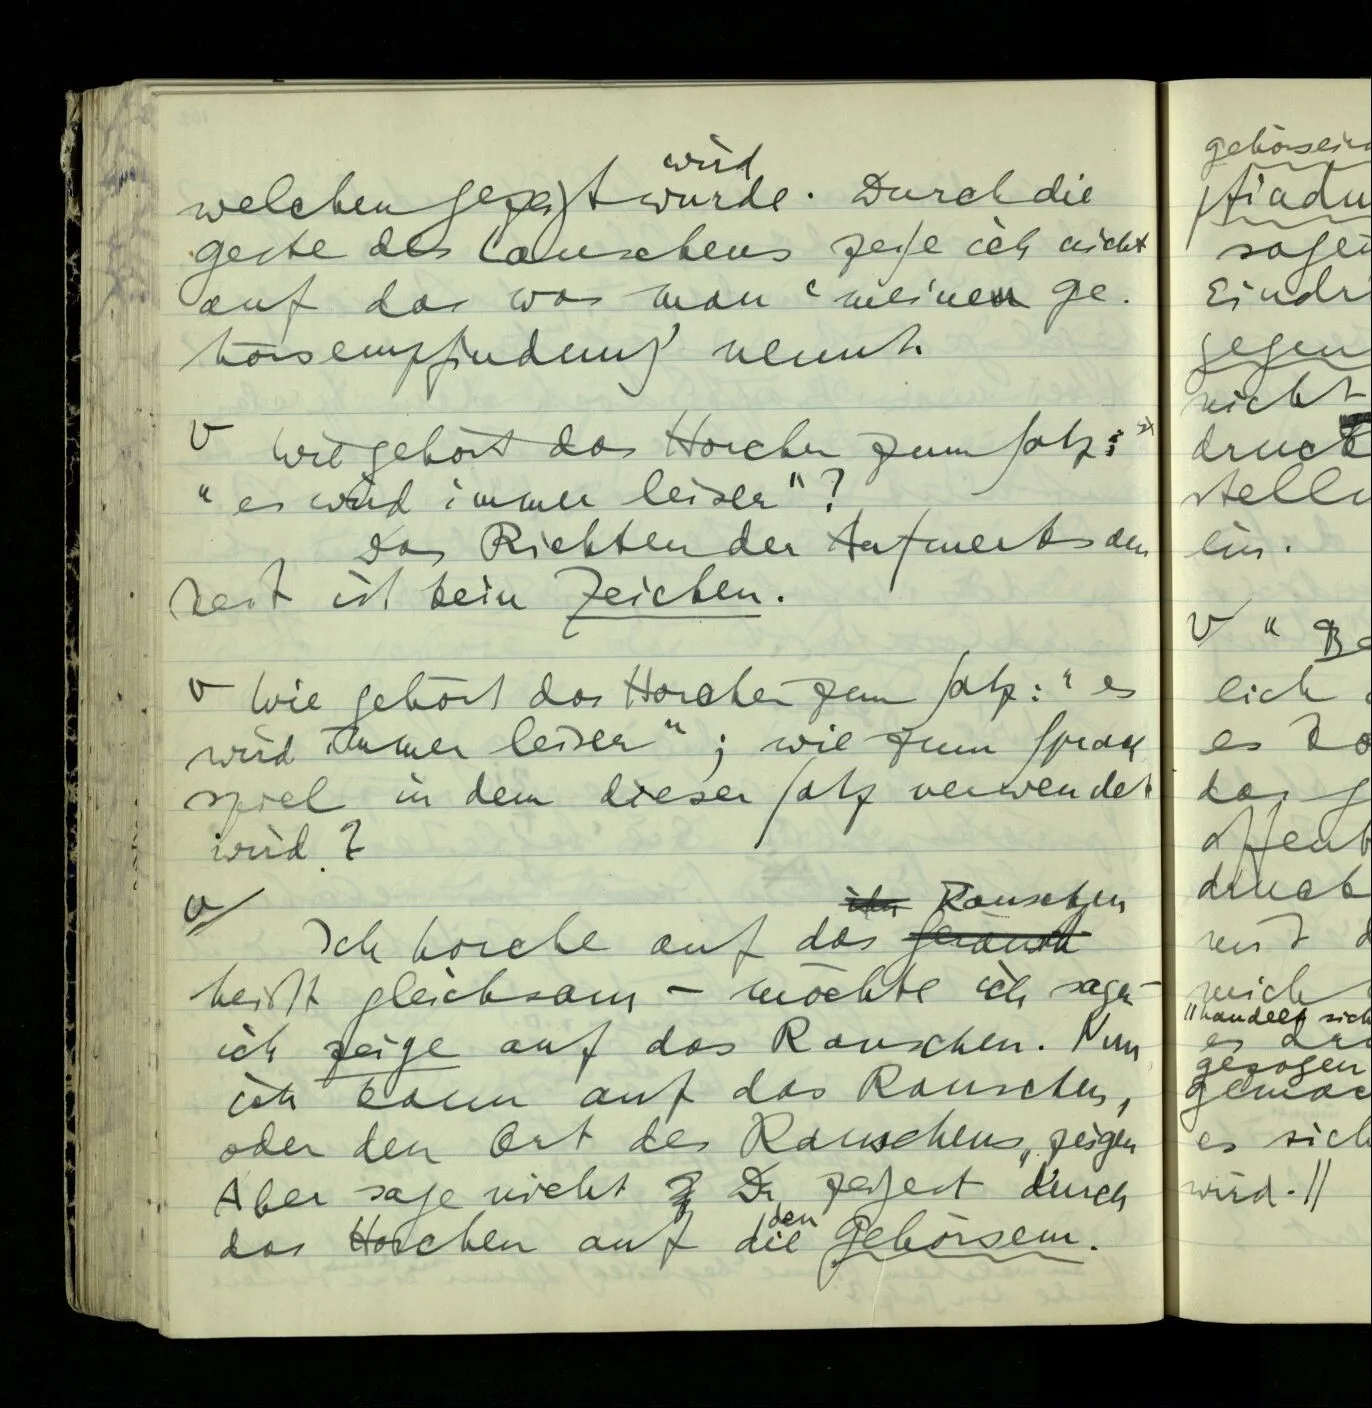 wird
welchen gezeigt wurde. Durch die
Geste des Lauschens zeige ich nicht
auf das was man 'meinen Ge-
hörsempfindung' nennt.
V Wie gehört das Horchen zum Satz:
"es wird immer leiser"?
Das Richten der Aufmerksam
keit ist kein Zeichen.
V Wie gehört das Horchen zum Satz: "es
wird immer leiser"; wie zum Sprach
spiel in dem dieser Satz verwendet
wird?
V Rauschen
Ich horche auf das Geräusch
heißt gleichsam – möchte ich sagen –
ich zeige auf das Rauschen. Nun
ich kann auf das Rauschen,
oder den Ort des Rauschens, zeigen
Aber sage nicht Du zeigest durch
das Horchen auf die den Gehörsein-
gehörsein
pfindu
sagen
Eindr
gegen
nicht
druck
stellu
ein.
V " Be
lich
es
das
offenb
druck
mich
"handelt sich
es
gezogen
gemac
es sich
wird.//